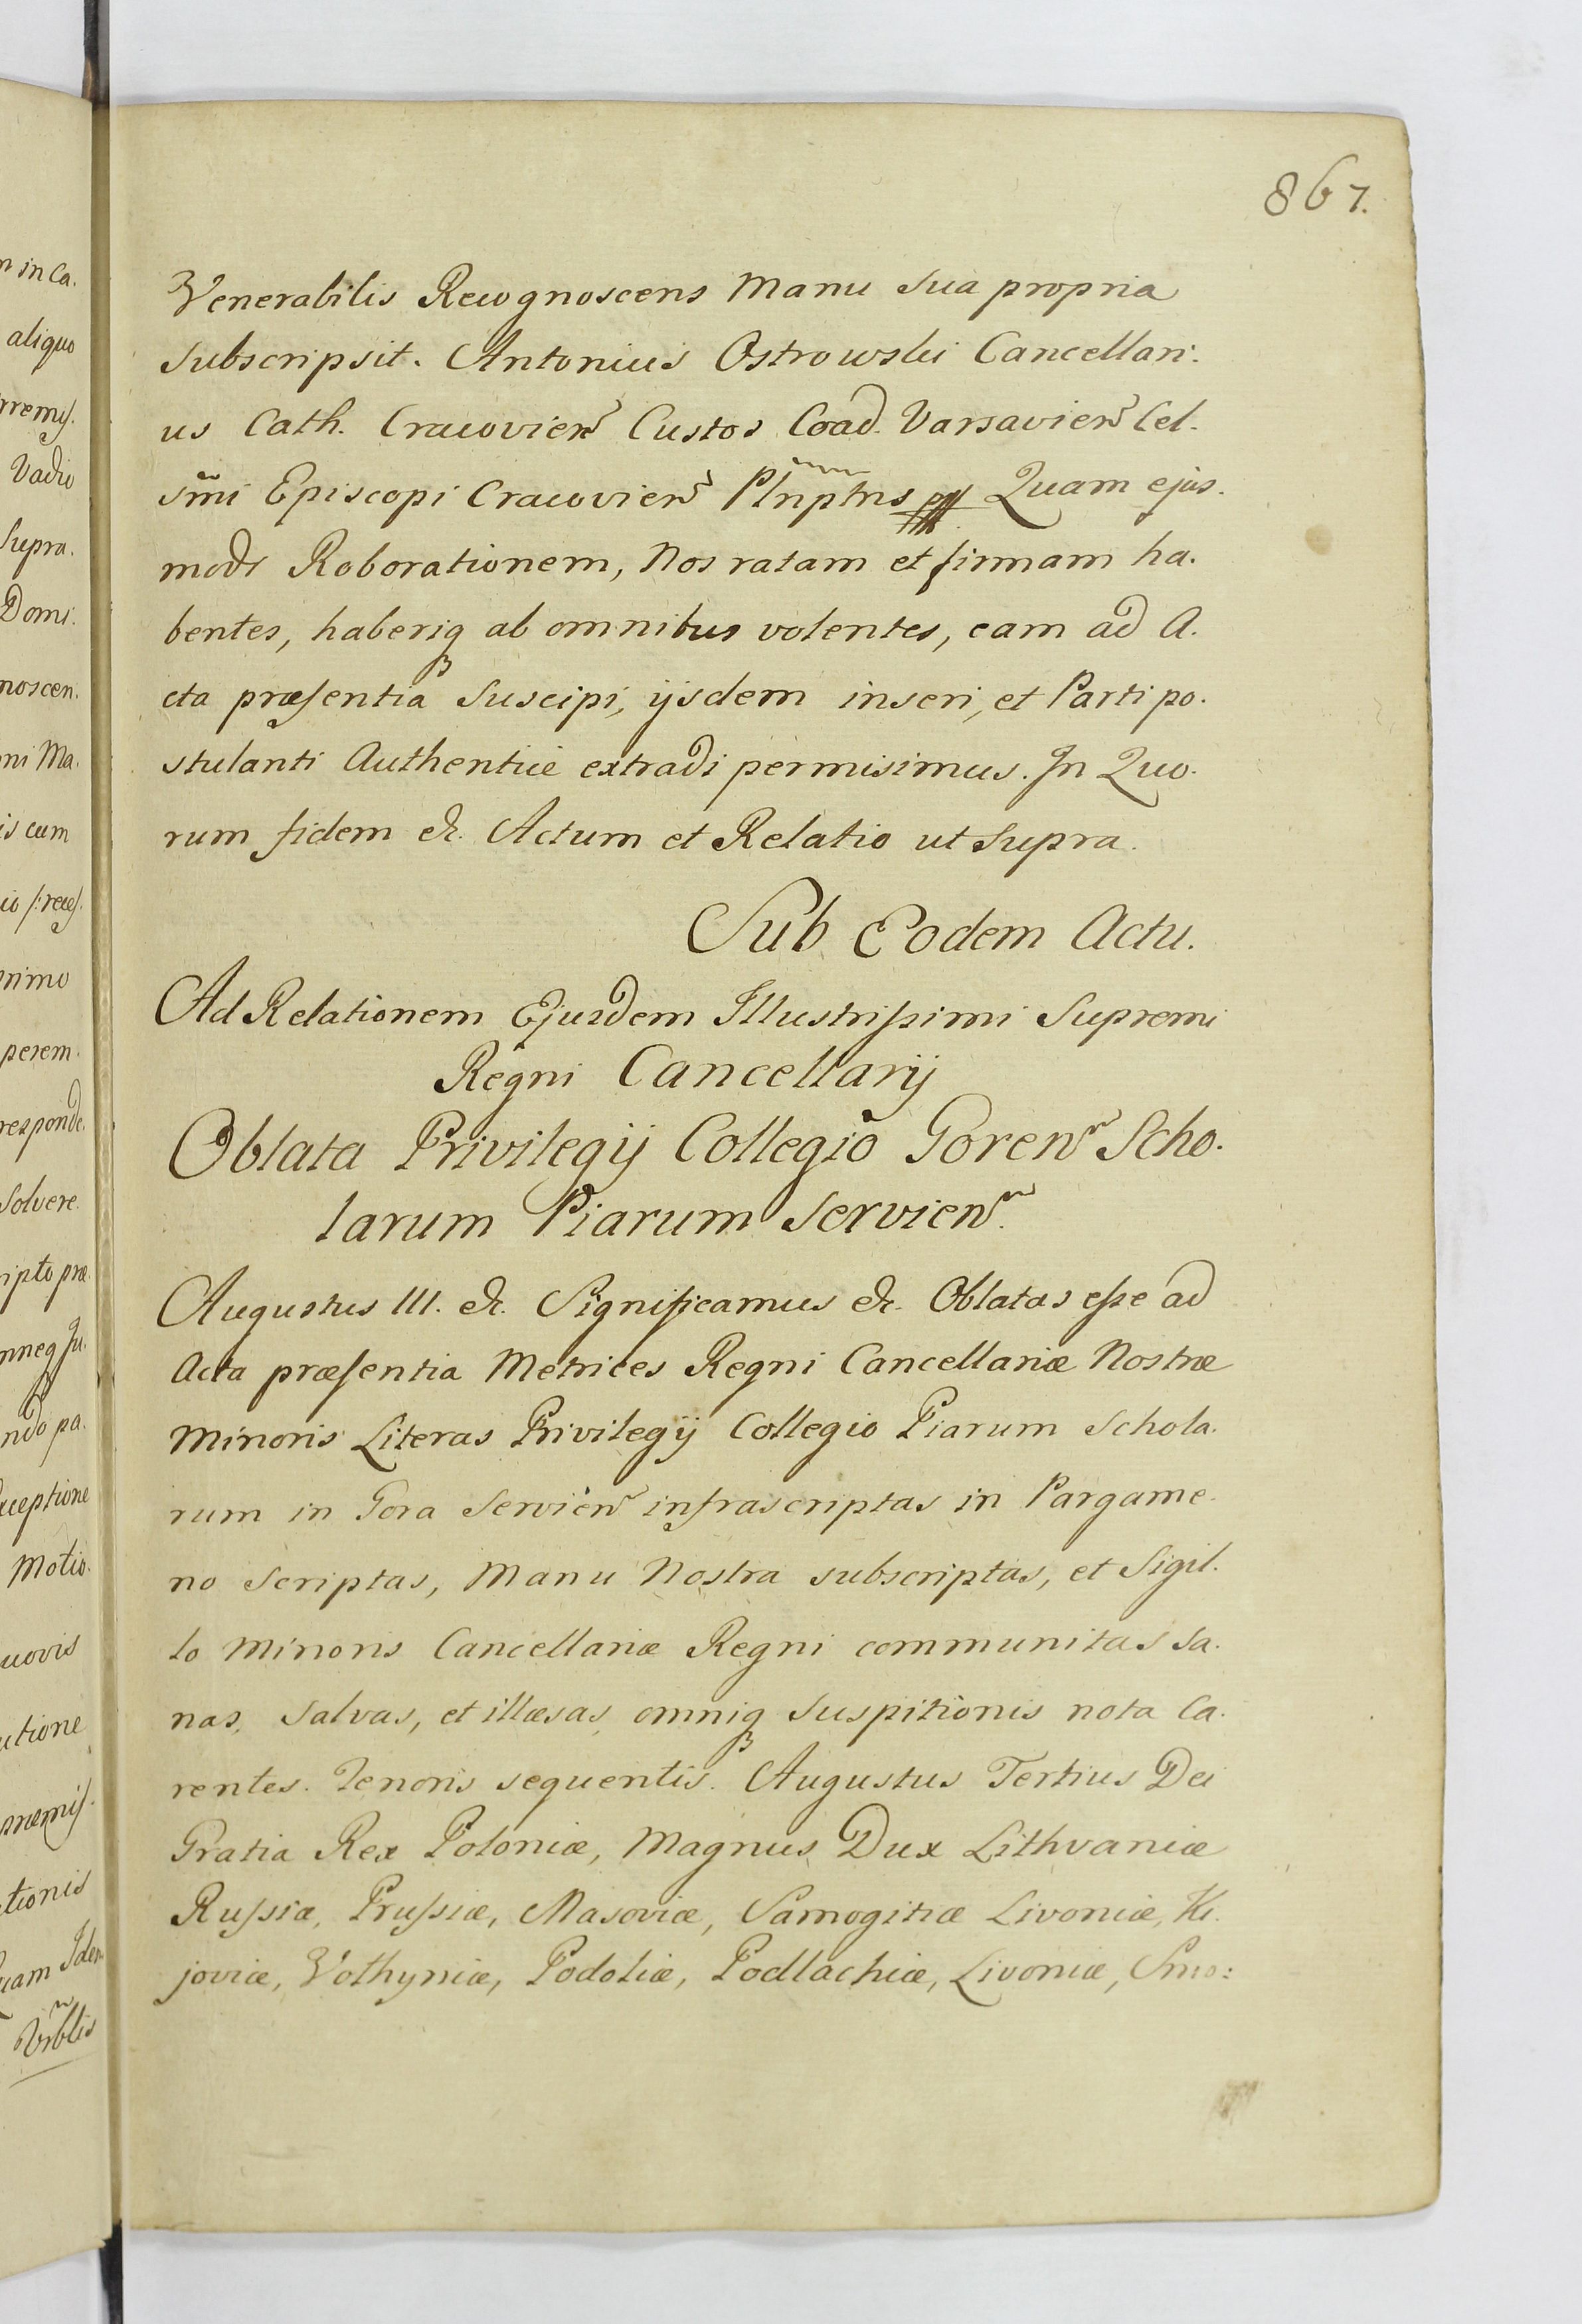 867.
Venerabilis Recognoscens Manu sua propria
subscripsit. Antonius Ostrowski Cancellari:
us Cath. Cracovien Custos Coad. Varsavien Cel.
smi Episcopi Cracovien Plnptns Quam ejus.
modi Roborationem, Nos ratam et firmam ha.
bentes, haberiq ab omnibus volentes, eam ad A.
cta præsentia suscipi, ijsdem inseri, et Parti po.
stulanti Authentice extradi permisimus. In Quo.
rum fidem &c. Actum et Relatio ut supra.
Sub Eodem Actu.
Ad Relationem Ejusdem Illustrissimi Supremi
Regni Cancellarij
Oblata Privilegij Collegio Goren Scho.
larum Piarum Servien.
Augustus III. &c. Significamus &c. Oblatas esse ad
Acta præsentia Metrices Regni Cancellariæ Nostræ
Minoris Literas Privilegij Collegio Piarum Schola.
rum in Gora Servien infrascriptas in Pargame.
no scriptas, Manu Nostra subscriptas, et Sigil.
lo Minoris Cancellariæ Regni communitas sa.
nas, salvas, et illæsas, omniq suspitionis nota ca.
rentes. Tenoris sequentis. Augustus Tertius Dei
Gratia Rex Poloniæ, Magnus Dux Lithvaniæ
Russiæ, Prussiæ, Masoviæ, Samogitiæ Livoniæ, Ki.
joviæ, Volhyniæ, Podoliæ, Podlachiæ, Livoniæ, Smo:
n in Ca.
aliquo
Vadio
supra.
Domi.
noscen.
ni Ma.
is cum
primo
perem.
responde.
solvere.
ripto præ.
ndo pa.
xceptione
Motio.
uovis
utione
tionis